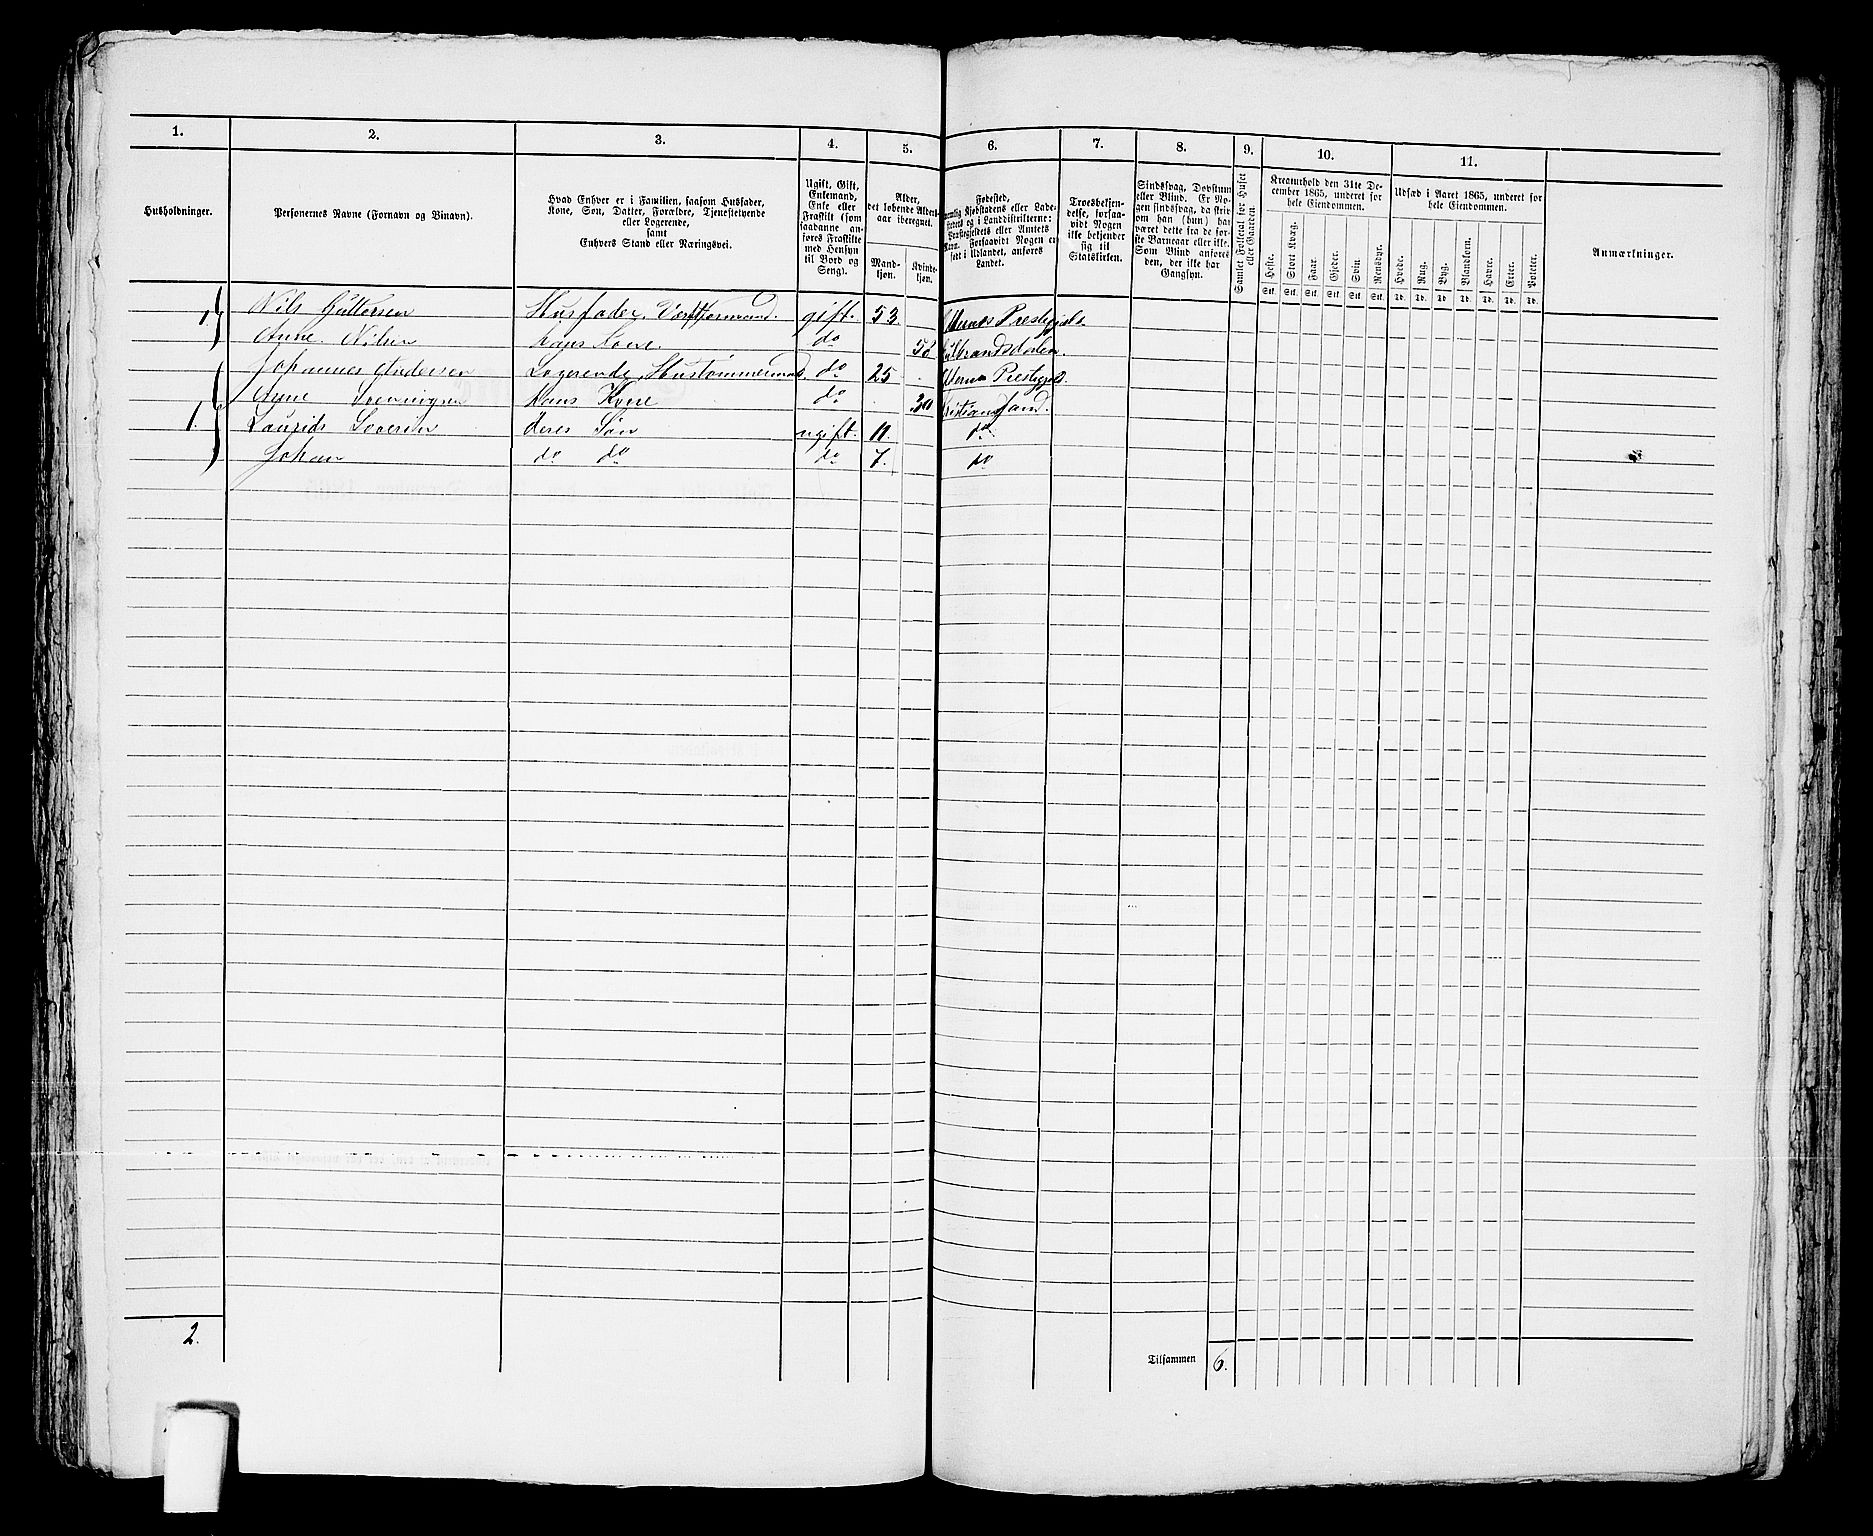 1. 2. 3. 4. 5. 6. 7. 8. 9. 10. 11.
Husholdninger.
Personernes Navne (Fornavn og Binavn).
Hvad Enhver er i Familien, saasom Husfader,
Kone, Søn, Datter, Forældre, Tjenestetyende
eller Logerende,
samt
Enhvers Stand eller Næringsvei.
Ugift, Gift,
Enkemand,
Enke eller
Fraskilt (som
saadanne an-
føres Fraskilte
med Hensyn
til Bord og
Seng).
Alder,
det løbende Alders-
aar iberegnet.
Mand-
kjøn.
Kvinde-
kjøn.
Fødested,
nemlig Kjøbstadens eller Lade-
stedets og i Landdistrikterne:
Præstegjeldets eller Amtets
Navn. Forsaavidt Nogen er
født i Udlandet, anføres
Landet.
Troesbekjen-
delse, forsaa-
vidt Nogen
ikke bekjender
sig til
Statskirken.
Sindssvag, Døvstum
eller Blind. Er No-
gen sindssvag, da skriv
om han (hun) har
været dette fra de før-
ste Barneaar eller ikke.
Som Blind anføres
den, der ikke har
Gangsyn.
Samlet Folketal for Huset
eller Gaarden.
Kreaturhold den 31te De-
cember 1865, underet for
hele Eiendommen.
Heste. Stort Kvæg. Faar. Gjeder. Svin. Rensdyr.
Stk. Stk. Stk. Stk. Stk. Stk.
Udsæd i Aaret 1865, underet for
hele Eiendommen.
Hvede. Rug. Byg. Blandkorn. Havre. Erter. Poteter.
Td. Td. Td. Td. Td. Td. Td.
Anmærkninger.
1. Nils Guttersen Husfader. Værftformand. gift. 53. Prestegjeld.
Anne Nilsen hans Kone. do 58 Gulbrandsdalen.
Johannes Andersen Logerende, Hustømmermand. do 25 Prestegjeld.
1. Anne hans Kone do 30 Kristiansand.
Laurids deres Søn ugift. 11. do
Johan do do do 7. do
2.
Tilsammen 6.